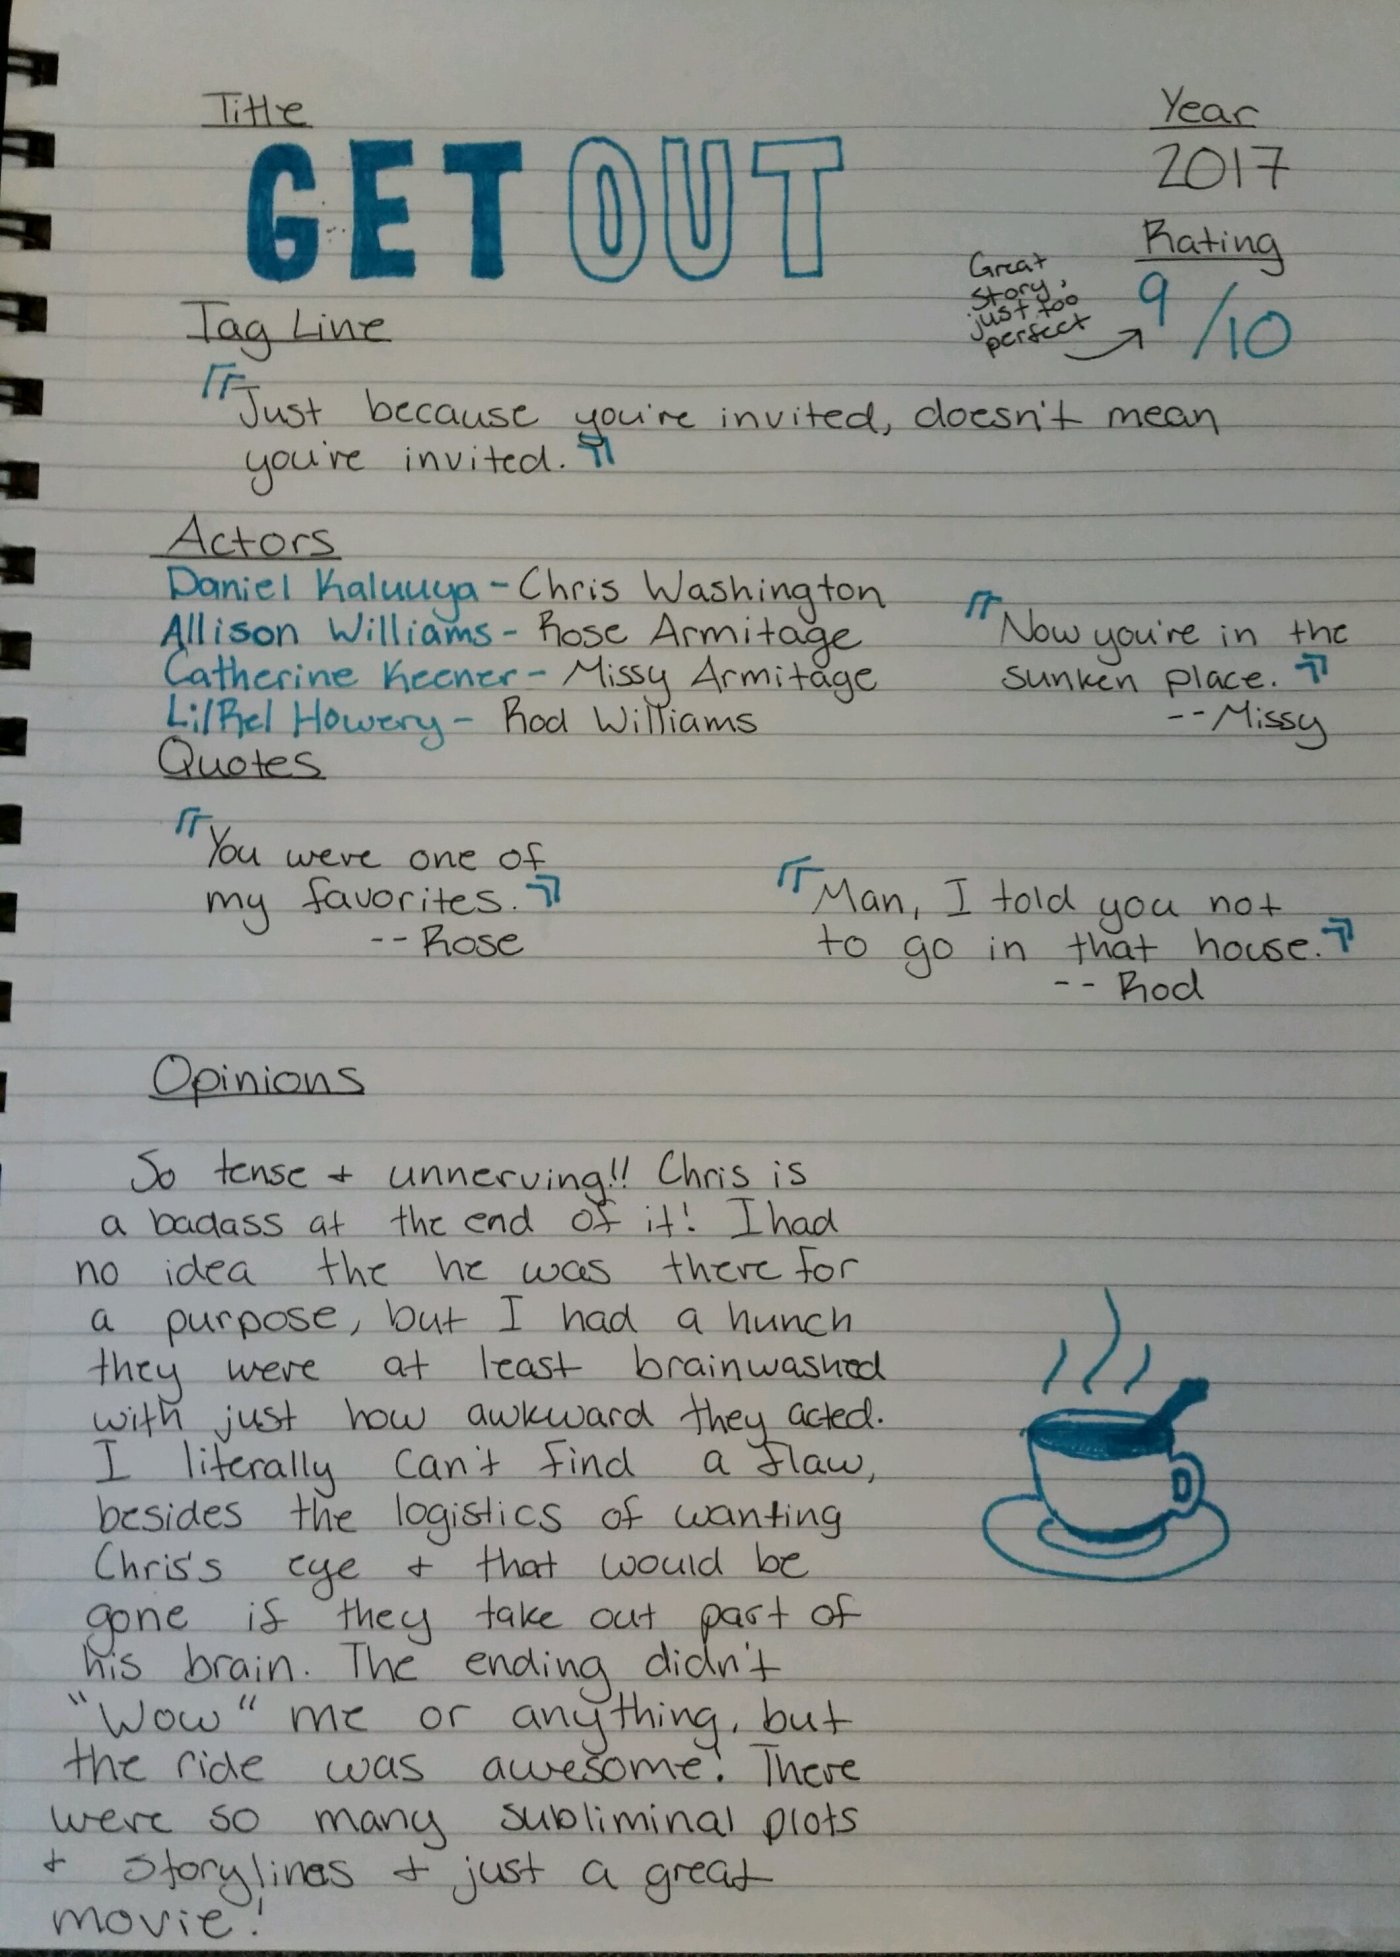 Title
GET OUT
Year
2017
Rating
9/10
Great
story,
just too
perfect
Tag Line
"Just because you're invited, doesn't mean
you're invited."
Actors
Daniel Kaluuya - Chris Washington
Allison Williams - Rose Armitage
Catherine Keener - Missy Armitage
LilRel Howery - Rod Williams
"Now you're in the
sunken place."
-- Missy
Quotes
"You were one of
my favorites."
-- Rose
"Man, I told you not
to go in that house."
-- Rod
Opinions
So tense + unnerving!! Chris is
a badass at the end of it! I had
no idea the he was there for
a purpose, but I had a hunch
they were at least brainwashed
with just how awkward they acted.
I literally can't find a flaw,
besides the logistics of wanting
Chris's eye + that would be
gone if they take out part of
his brain. The ending didn't
"Wow" me or anything, but
the ride was awesome! There
were so many subliminal plots
+ storylines + just a great
movie!